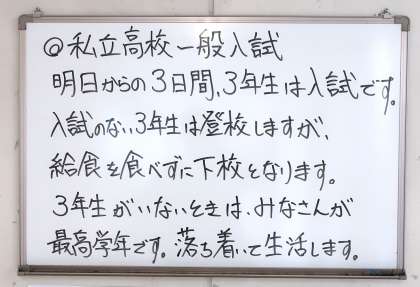 ◎私立高校一般入試
明日からの3日間、3年生は入試です。
入試のない3年生は登校しますが、
給食を食べずに下校となります。
3年生がいないときは、みなさんが
最高学年です。落ち着いて生活します。